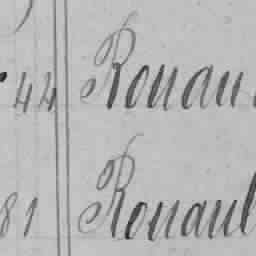 44 Rouau
81 Rouaul